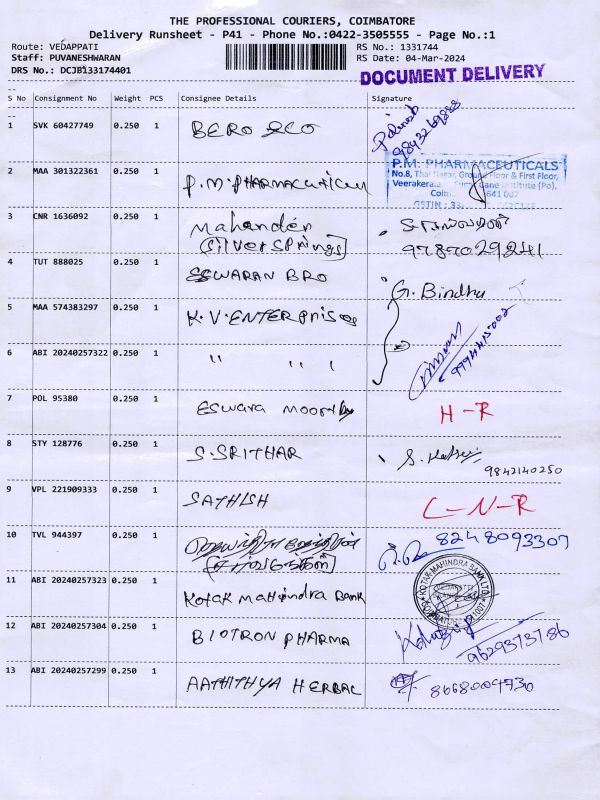 THE PROFESSIONAL COURIERS, COIMBATORE
Delivery Runsheet - P41 - Phone No.:0422-3505555 - Page No.:1
Route: VEDAPPATI
Staff: PUVANESHWARAN
DRS No.: DCJB133174401
RS No.: 1331744
RS Date: 04-Mar-2024
DOCUMENT DELIVERY
S No Consignment No Weight PCS Consignee Details Signature
1 SVK 60427749 0.250 1 BERO & CO
2 MAA 301322361 0.250 1 P.M. PHARMACEUTICALS
P.M. PHARMACEUTICALS
No.8, Thai Nagar, Ground Floor & First Floor,
3 CNR 1636092 0.250 1 Mahander
(Silver Springs) 9787029241
4 TUT 888025 0.250 1 ESWARAN BRO G. Bindhu
5 MAA 574383297 0.250 1 K.V. ENTERPRISES
6 ABI 20240257322 0.250 1 " " "
7 POL 95380 0.250 1 ESWARA MOORTHY H-R
8 STY 128776 0.250 1 S. SRITHAR 9842140250
9 VPL 221909333 0.250 1 SATHISH C-N-R
10 TVL 944397 0.250 1 8248093307
11 ABI 20240257323 0.250 1 KOTAK MAHINDRA BANK
KOTAK MAHINDRA BANK LTD.
12 ABI 20240257304 0.250 1 BIOTRON PHARMA 9629373786
13 ABI 20240257299 0.250 1 AATHITHYA HERBAL 8668004730